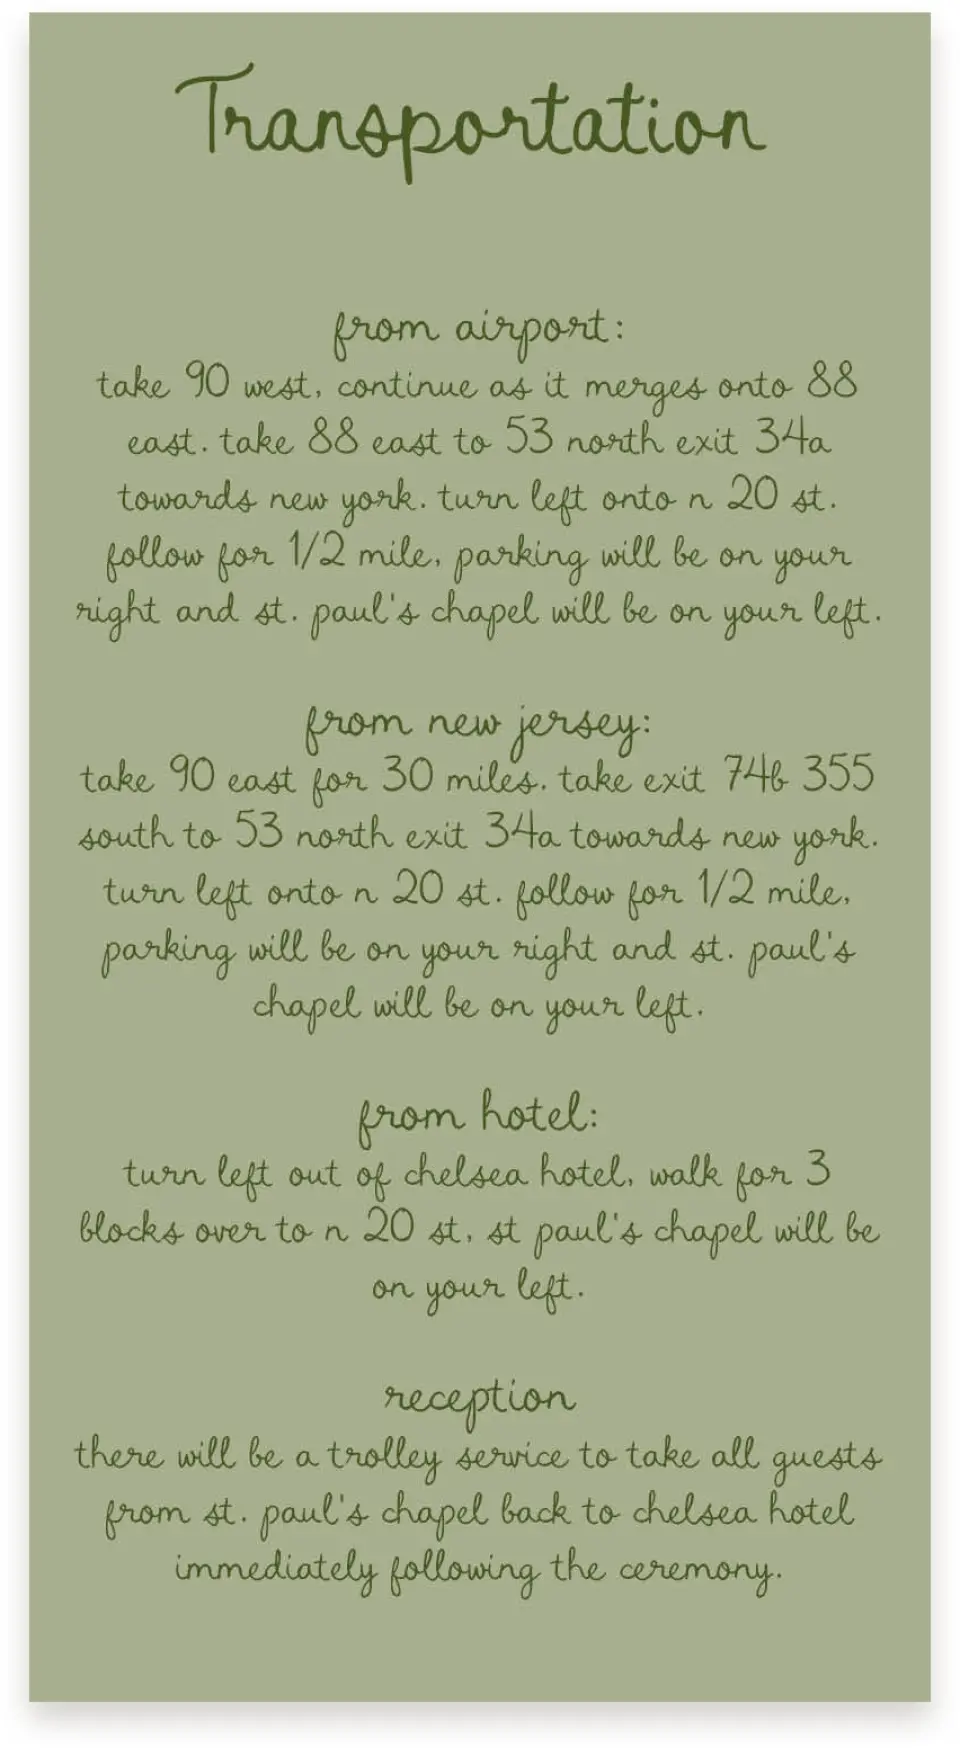 Transportation
from airport:
take 90 west, continue as it merges onto 88
east. take 88 east to 53 north exit 34a
towards new york. turn left onto n 20 st.
follow for 1/2 mile, parking will be on your
right and st. paul's chapel will be on your left.
from new jersey:
take 90 east for 30 miles. take exit 74b 355
south to 53 north exit 34a towards new york.
turn left onto n 20 st. follow for 1/2 mile,
parking will be on your right and st. paul's
chapel will be on your left.
from hotel:
turn left out of chelsea hotel, walk for 3
blocks over to n 20 st, st paul's chapel will be
on your left.
reception
there will be a trolley service to take all guests
from st. paul's chapel back to chelsea hotel
immediately following the ceremony.